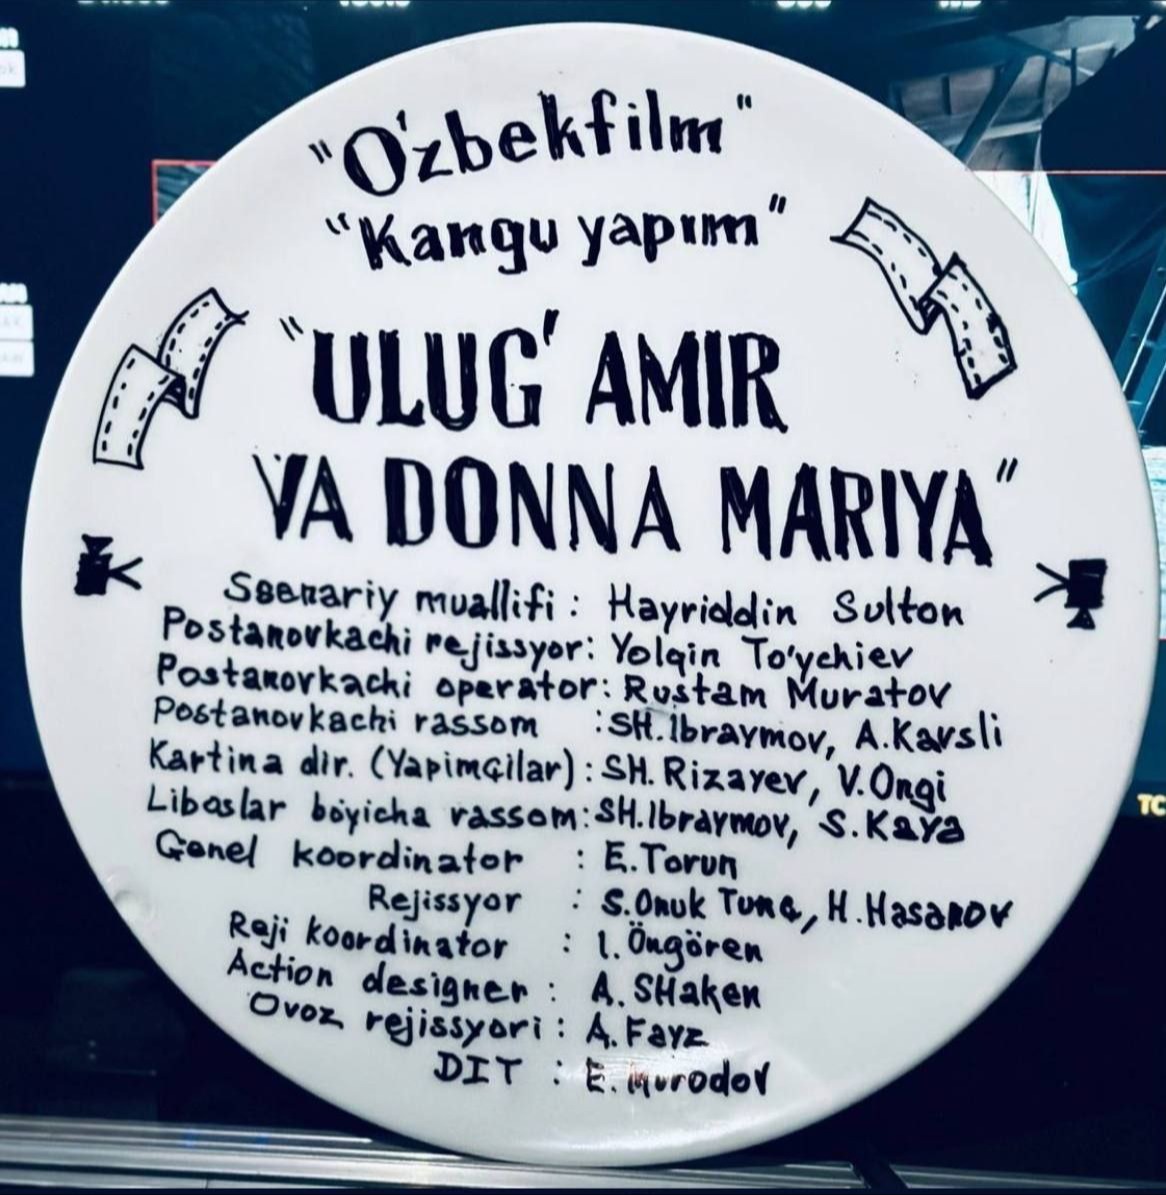 "O'zbekfilm"
"Kangu yapım"
"ULUG' AMIR
VA DONNA MARIYA"
Ssenariy muallifi : Hayriddin Sulton
Postanovkachi rejissyor: Yolqin To'ychiev
Postanovkachi operator: Rustam Muratov
Postanovkachi rassom : SH.Ibraymov, A.Karsli
Kartina dir. (Yapimçilar) : SH. Rizayev, V.Ongi
Liboslar bo'yicha rassom: SH.Ibraymov, S.Kaya
Genel koordinator : E.Torun
Rejissyor : S.Onuk Tunç, H.Hasanov
Reji koordinator : I.Öngören
Action designer : A. SHaken
Ovoz rejissyori : A.Fayz
DIT : E.Murodov
TC